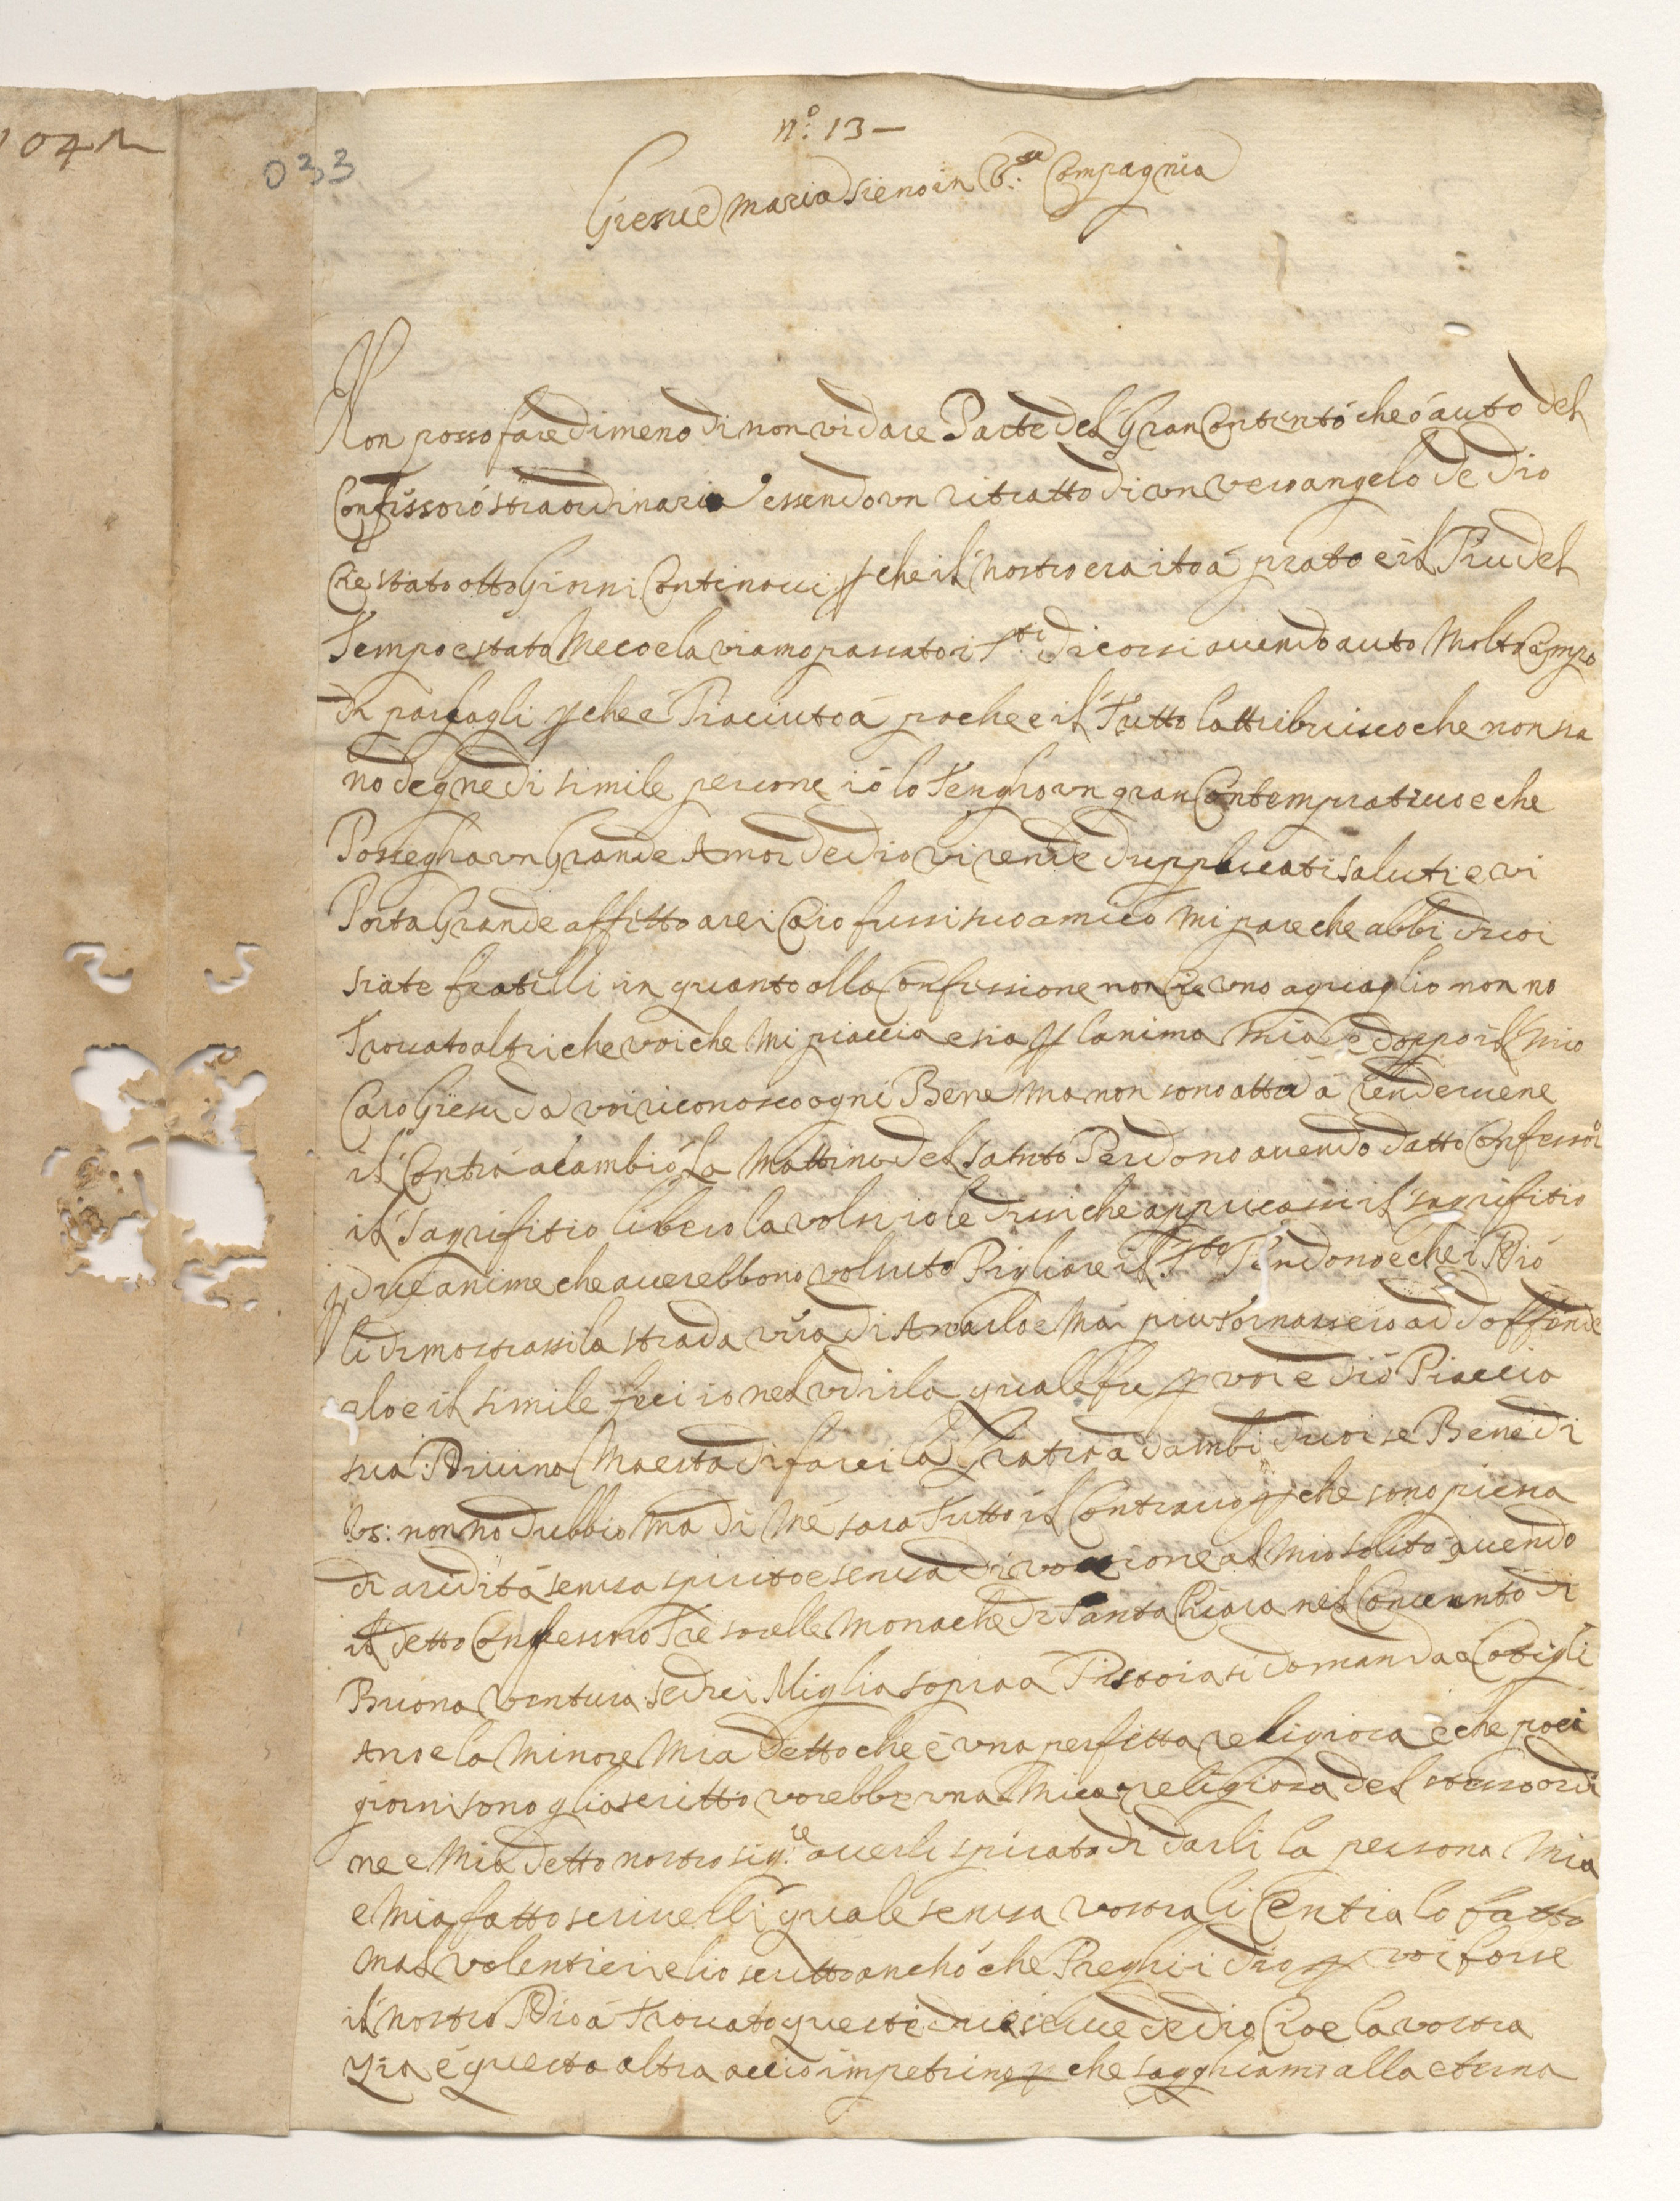 104
033
n.o 13 –
Giesu e Maria sieno in V.ra Compagnia
Non posso fare dimeno di non vi dare Parte del Gran Contento che ó auto del
Confissoro straordinario essendo un ritratto di un vero angelo de dio
Cie stato otto Giorni Continoui p che il nostro era ito á prato e il Piu del
Tempo e stato Meco e la viamo passato i S.ti dicorsi auendo auto Molto Campo
di parlagli p che é Piaciuto á poche e il Tutto lattribuisco che non sia
no degne di simile persone io lo Tengho un gran Contempratiuo e che
Possegha un Grande Amor de dio vi rende dupplicati saluti e vi
Porta Grande affetto arei Caro fussi suo amico Mi pare che abbi duoi
siate fratelli in quanto alla Confessione non Cie uno aguaglio non no
Trouato altri che voi che Mi piaccia e sia p lanima Mia e doppo il Mio
Caro Giesu da voi riconosco ogni Bene Ma non sono atta á renderuene
il Contra acambio La Mattina del Santo Perdono auendo datto Confessor
il Sagrifitio libero la volsi io le dissi che appricassi il sagrifitio
p due anime che auerebbono volsuto Pigliare il S.to Perdono e che i Dió
li dimostrassi la strada vera di Amarlo e Mai piu tornassero ad doffende
alo e il simile feci io nel Vdirla quale fu p voi e dió Piaccia
sua Diuina Maesta di farci la Gratia á dambi duoi se Bene di
Vs: non no dubbio Ma di Mé sara Tutto il Contrario p che sono piena
di aridita sensa spirito e sensa di vozione al Mio solito auendo
il detto Confessoro Tre sorelle Monache di Santa Chiara nel Conuento di
Buona Ventura sedici Miglia sopra a Pistoia si domanda a Cotigli
Ano e la Minore Mia detto che é una perfetta religiosa e che poci
giorni sono glia scritto vorebbe una Mica religiosa del stesso ordi
ne e Mia detto nostro sig.re auerli spirato di darli la persona Mia
e Mia fatto scriuelli quale sensa vostra li Centia lo fatto
Mal volentieri e lio scritto ancho che Preghi i dio p voi forse
il nostro Dio á Trouato queste due serue de dio Cioe la vostra
Zia é questa altra accio impetrino p che sagghiamo alla eterna